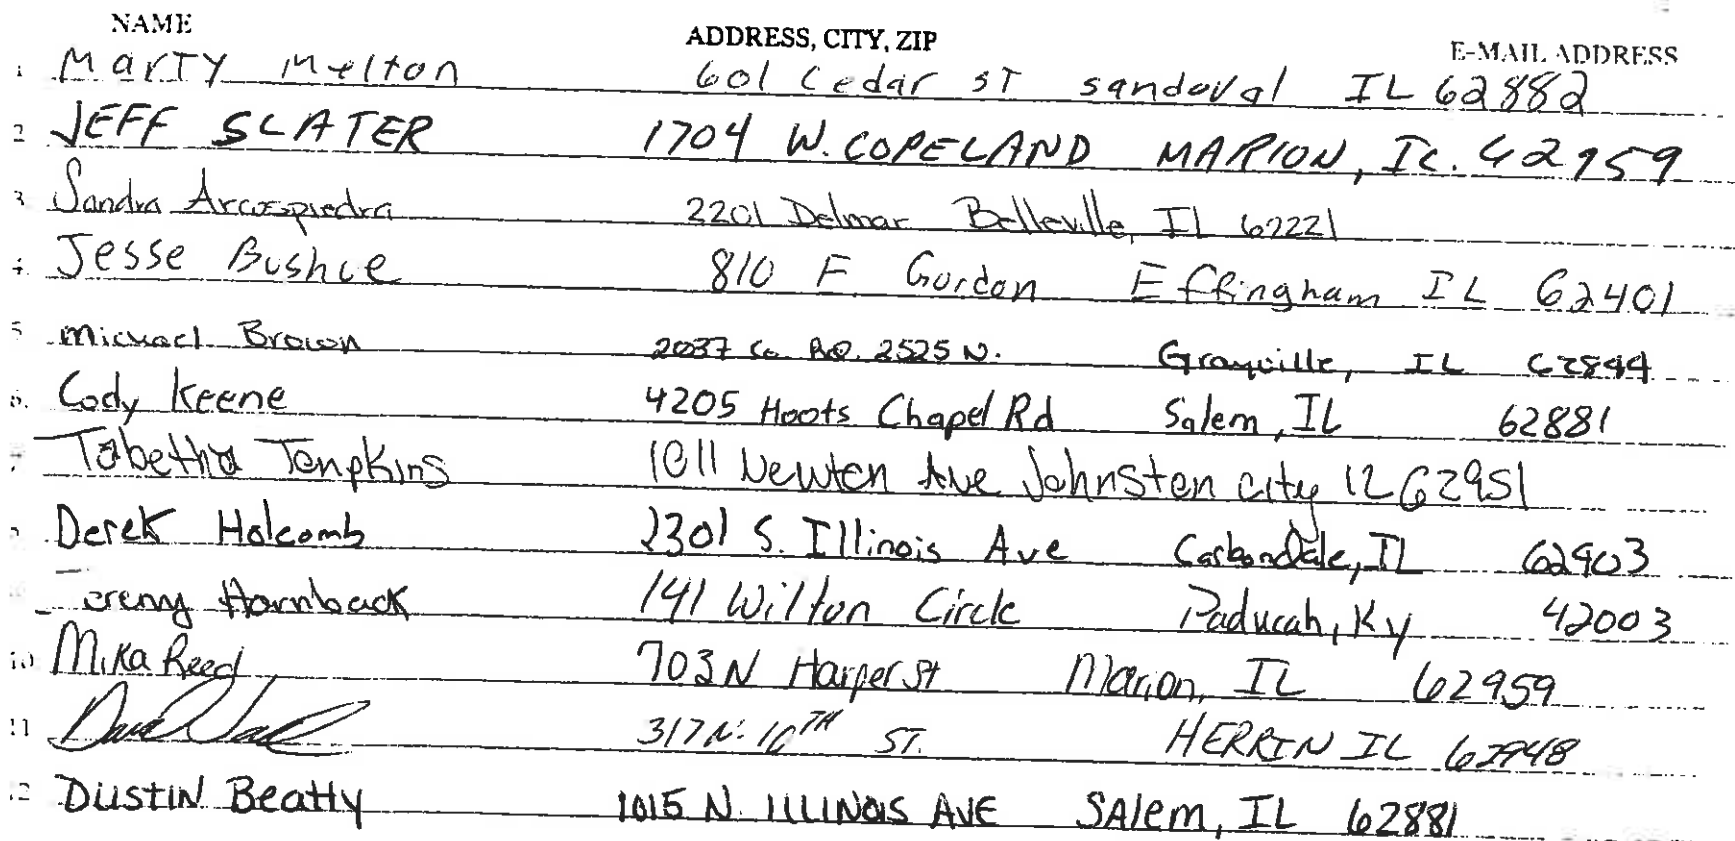 NAME ADDRESS, CITY, ZIP E-MAIL ADDRESS
1 Marty Melton 601 Cedar ST sandoval IL 62882
2 JEFF SLATER 1704 W. COPELAND MARION, IL. 62959
3 Sandra Arcospiedra 2201 Delmar Belleville, IL 62221
4. Jesse Bushue 810 E. Gordon Effingham IL 62401
5 Michael Brown 2037 Co. RD. 2525 N. Grayville, IL 62844
6. Cody Keene 4205 Hoots Chapel Rd Salem, IL 62881
7 Tabetha Tompkins 1011 Newton Ave Johnston city IL 62951
Derek Holcomb 2301 S. Illinois Ave Carbondale, IL 62903
Hornback 141 Wilton Circle Paducah, Ky 42003
10 Mika Reed 703 N Harper St Marion, IL 62959
11 317 N. 10TH ST. HERRIN IL 62948
12 DUSTIN Beatty 1015 N. ILLINOIS AVE SAlem, IL 62881